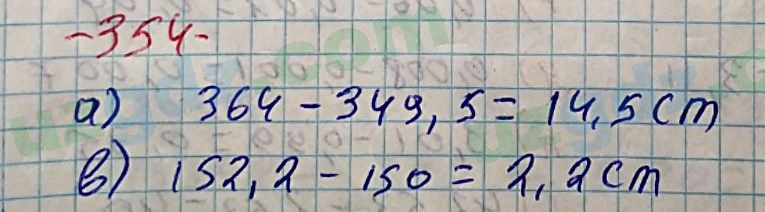 -354-
a) 364 - 349,5 = 14,5 cm
в) 152,2 - 150 = 2,2 cm